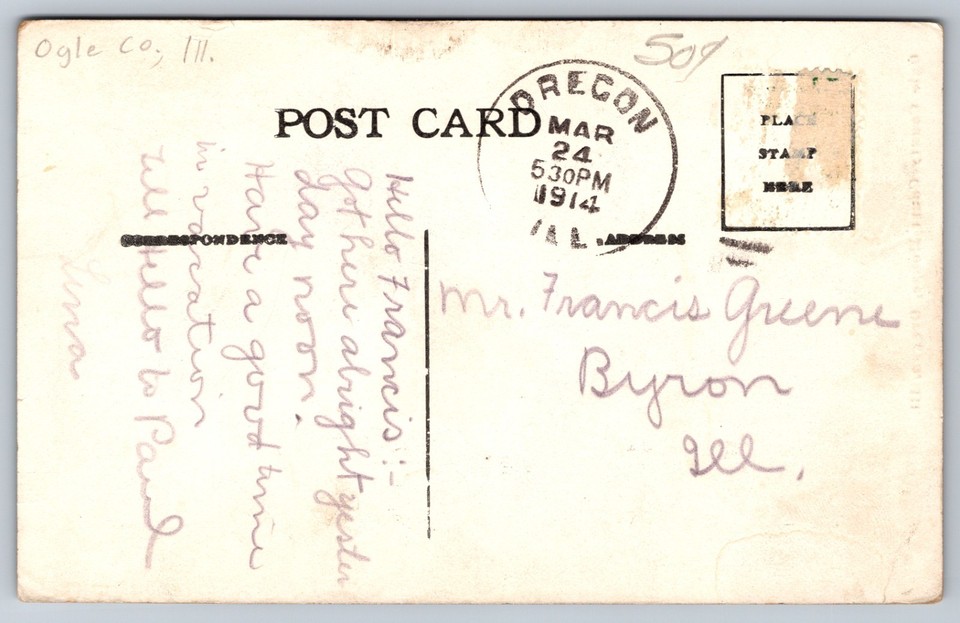 Ogle Co, Ill.
50¢
POST CARD
OREGON
MAR
24
530PM
1914
ILL.
PLACE
STAMP
HERE
CORRESPONDENCE
ADDRESS
Hello Francis:-
Got here alright yester
day noon.
Have a good time
in vacation
Tell Hello to Paul
Lena
Mr. Francis Greene
Byron
Ill.